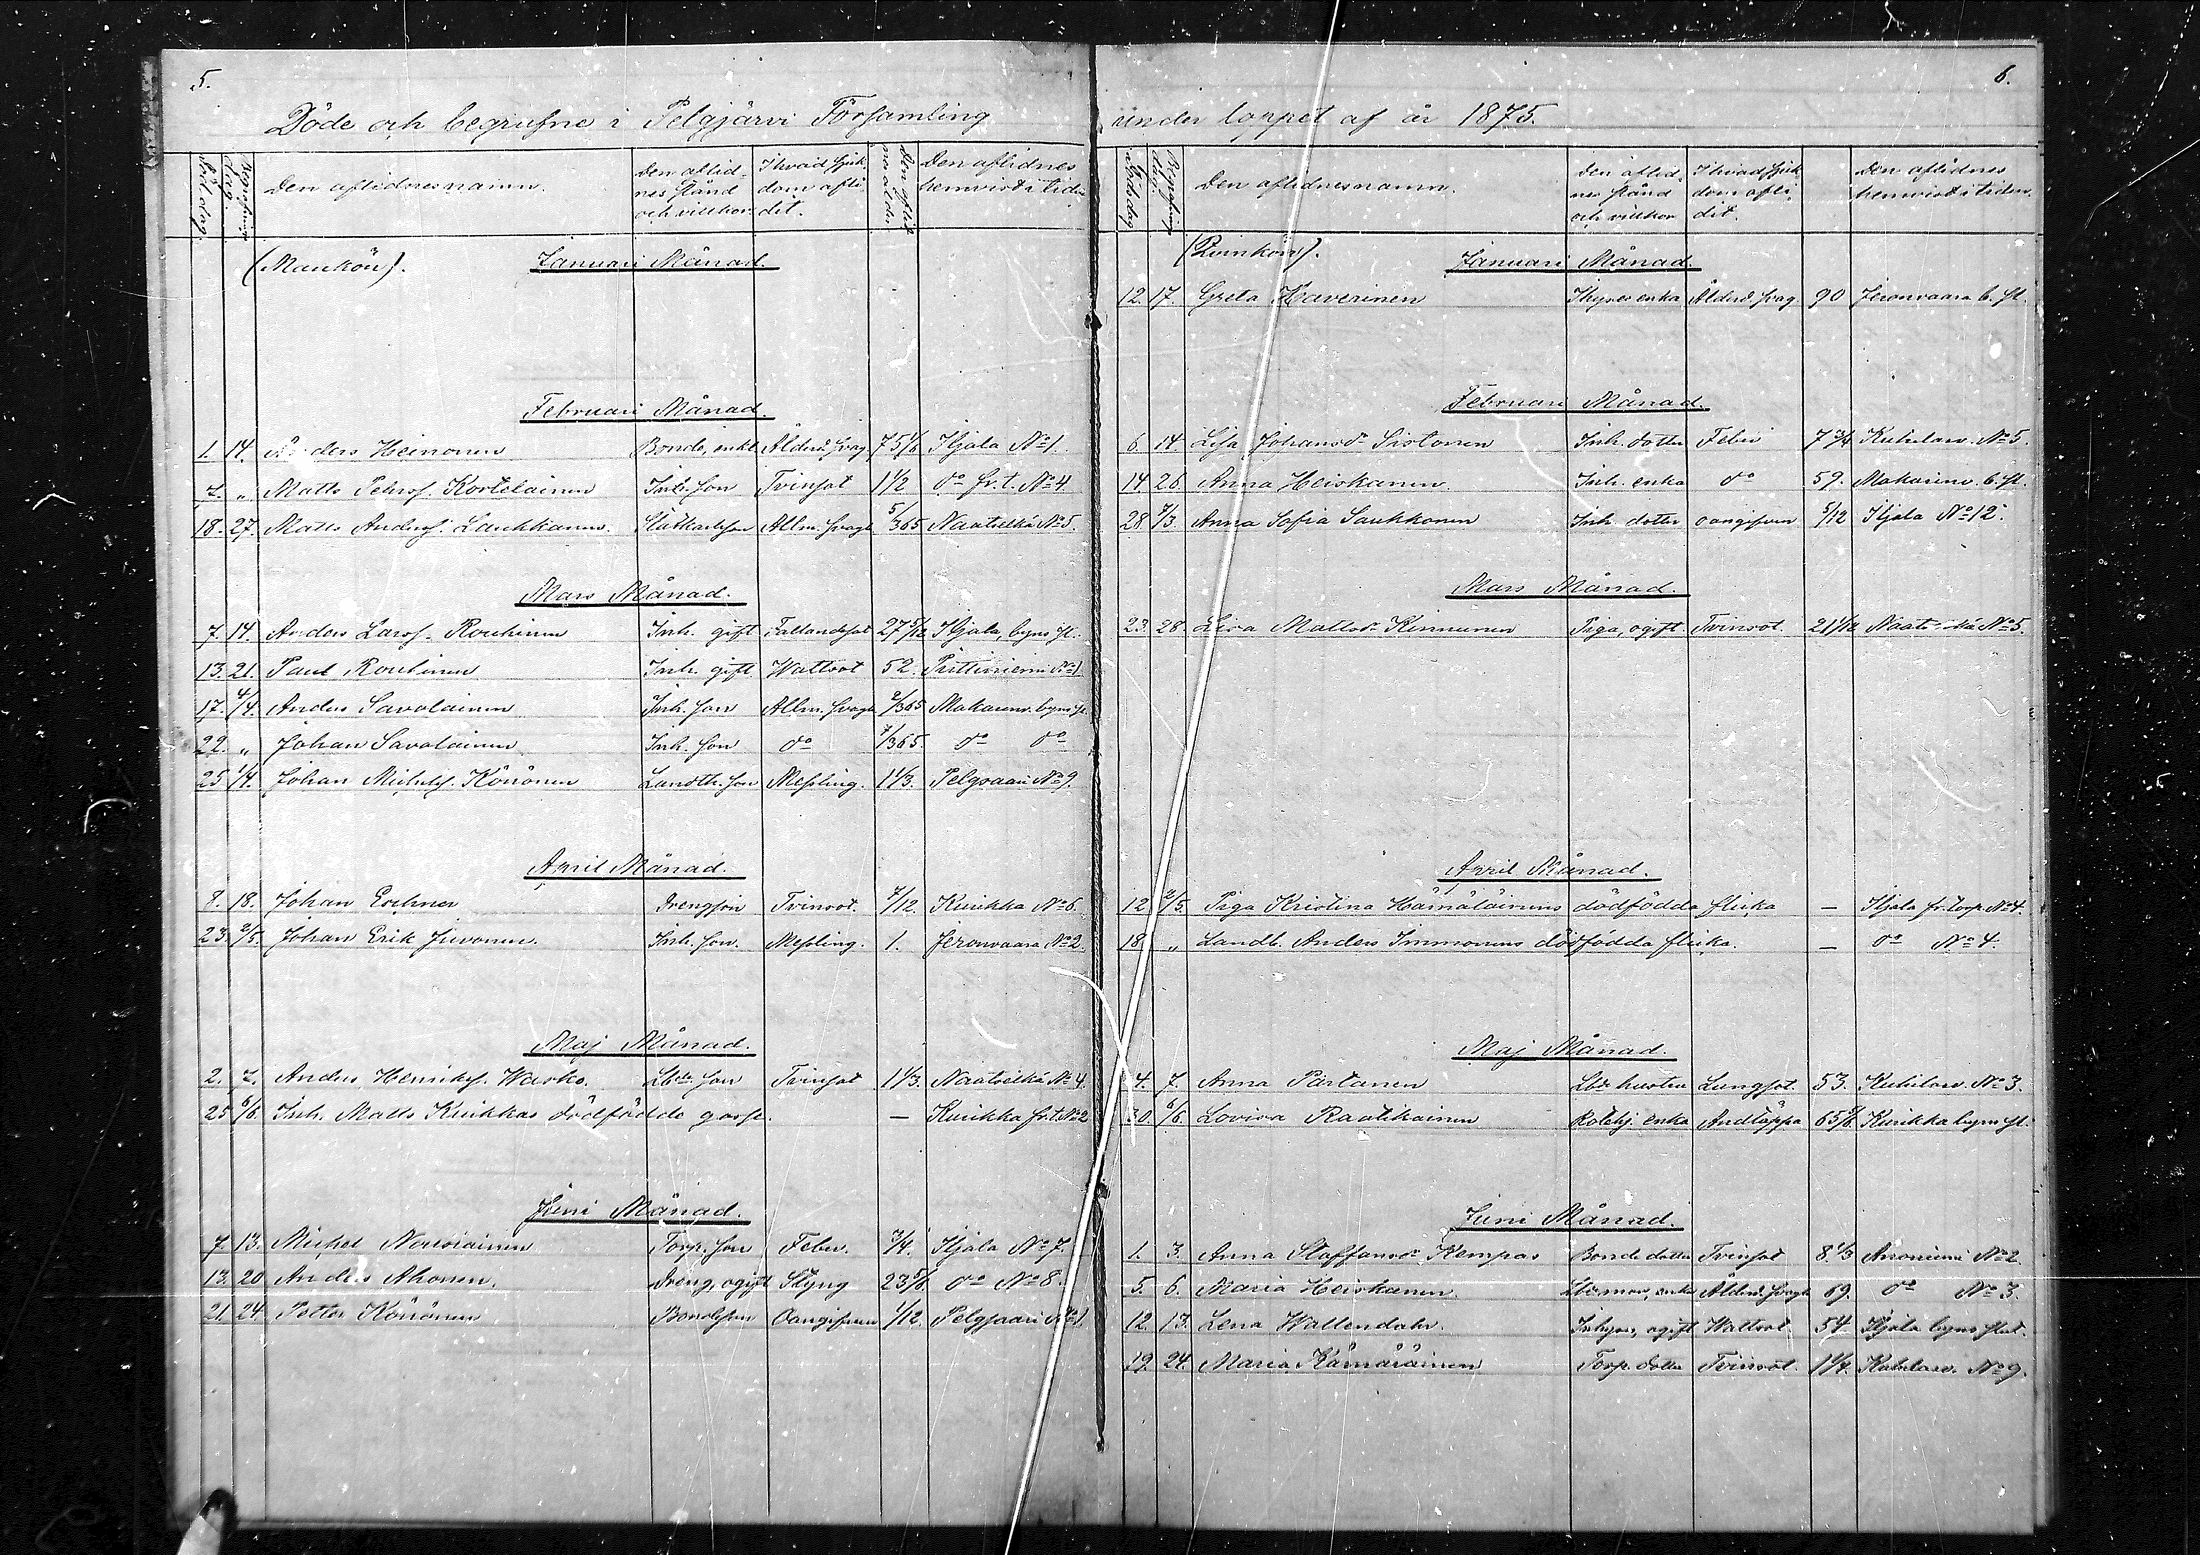 5.
Döde och begrafne i Pelgjärvi Församling
Döds dag.
Begrafnings dag.
Den aflidnes namn.
Den aflid-
nes stånd
och villkor
I hvad sjuk-
dom afli-
dit.
Den aflid-
nes ålder.
Den aflidnes
hemvist i tiden
(Mankön). Januari Månad.
Februari Månad.
1. 14. Anders Heinonen Bonde, enkl. Ålderd. svag. 75 1/6 Itjala No 1.
7. " Matts Pehrs. Kortelainen Inh. son Tvinsot 1 1/2 do fr. t. No 4
18. 27. Matts Anders. Laukkanen. Slåtkarlsson Allm. svagh. 5/365 Naatselkä No 5.
Mars Månad.
7. 14. Anders Larss. Rouhinen Inh. gift Fallandesot 27 5/12 Itjala, byns st.
13. 21. Paul Rouhinen Inh. gift Wattsot 52. No 1
17. 4/4. Anders Savolainen Inh. son Allm. svagh. 2/365 Makarinv. byns st.
22. " Johan Savolainen Inh. son do 7/365. do do
25 1/4. Johan Michels. Könönen Landth. son Messling. 1 1/3. Pelgsaari No 9.
April Månad.
8. 18. Johan Drengson Tvinsot. 7/12. Kurikka No 6.
23. 2/5. Johan Erik Juvonen. Inh. son. Messling. 1. Jeronvaara No 2.
Maj Månad.
2. 7. Anders Henriks. Wasko. Lbde. son Tvinsot 1 1/3. Naatselkä No 4.
25 6/6 Inh. Matts Kurikkas dödfödde gosse. — Kurikka fr. t. No 2
Juni Månad.
7. 13. Michel Nousiainen Torp. son Feber. 3/4. Itjala No 7.
13. 20 Anders Ahonen. Dreng, ogift Styng 23 5/6. do No 8.
21. 24. Petter Könönen Bondeson Oangifven 1/12. Pelgsaari No 1.
6.
under loppet af år 1875.
Döds dag
Begrafnings dag.
Den aflidnes namn.
Den aflid-
nes stånd
och villkor
I hvad sjuk-
dom afli-
dit.
Den aflidnes
hemvist i tiden.
(Qvinkön). Januari Månad.
12. 17. Greta Kaverinen enka Ålderd. svag. 90 Jeronvaara b. st.
Februari Månad.
6. 14. Lisa Johansdr Sistonen Inh. dotter Feber 7 3/4 Kuhilasv. No 5.
14. 26. Anna Heiskanen. Inh. enka do 59. Makarinv. b. st.
28 7/3. Anna Sofia Saukkonen Inh. dotter oangifven 5/12 Itjala No 12.
Mars Månad.
23. 28 Lisa Mattsdr Kinnunen Piga, ogift. Tvinsot. 21 1/12 Naatselkä No 5.
April Månad.
12 2/5. Piga Kristina Hämäläinens dödfödda flicka — Itjala fr. torp. No 4.
18. " Landb. Anders Immonens dödfödda flicka. — do No 4.
Maj Månad.
4. 7. Anna Partanen Lbde hustru Lungsot. 53. Kuhilasv. No 3.
30. 6/6. Lovisa Raatikainen Rotehj. enka Andtäppa 65 5/6. Kurikka byns st.
Juni Månad.
1. 3. Anna Staffansdr Kempas Bonde dotter Tvinsot 8 1/3 Anoniemi No 2.
5. 6. Maria Heiskanen. Lbdsmor, enka Ålderd. svagh 69. do No 3.
12. 13. Lena Wallendahr. Inhys., ogift Wattsot 54 Itjala byns st.
19. 24. Maria Kämäräinen Torp. dotter Tvinsot. 1 1/4. Kuhilasv. No 9.